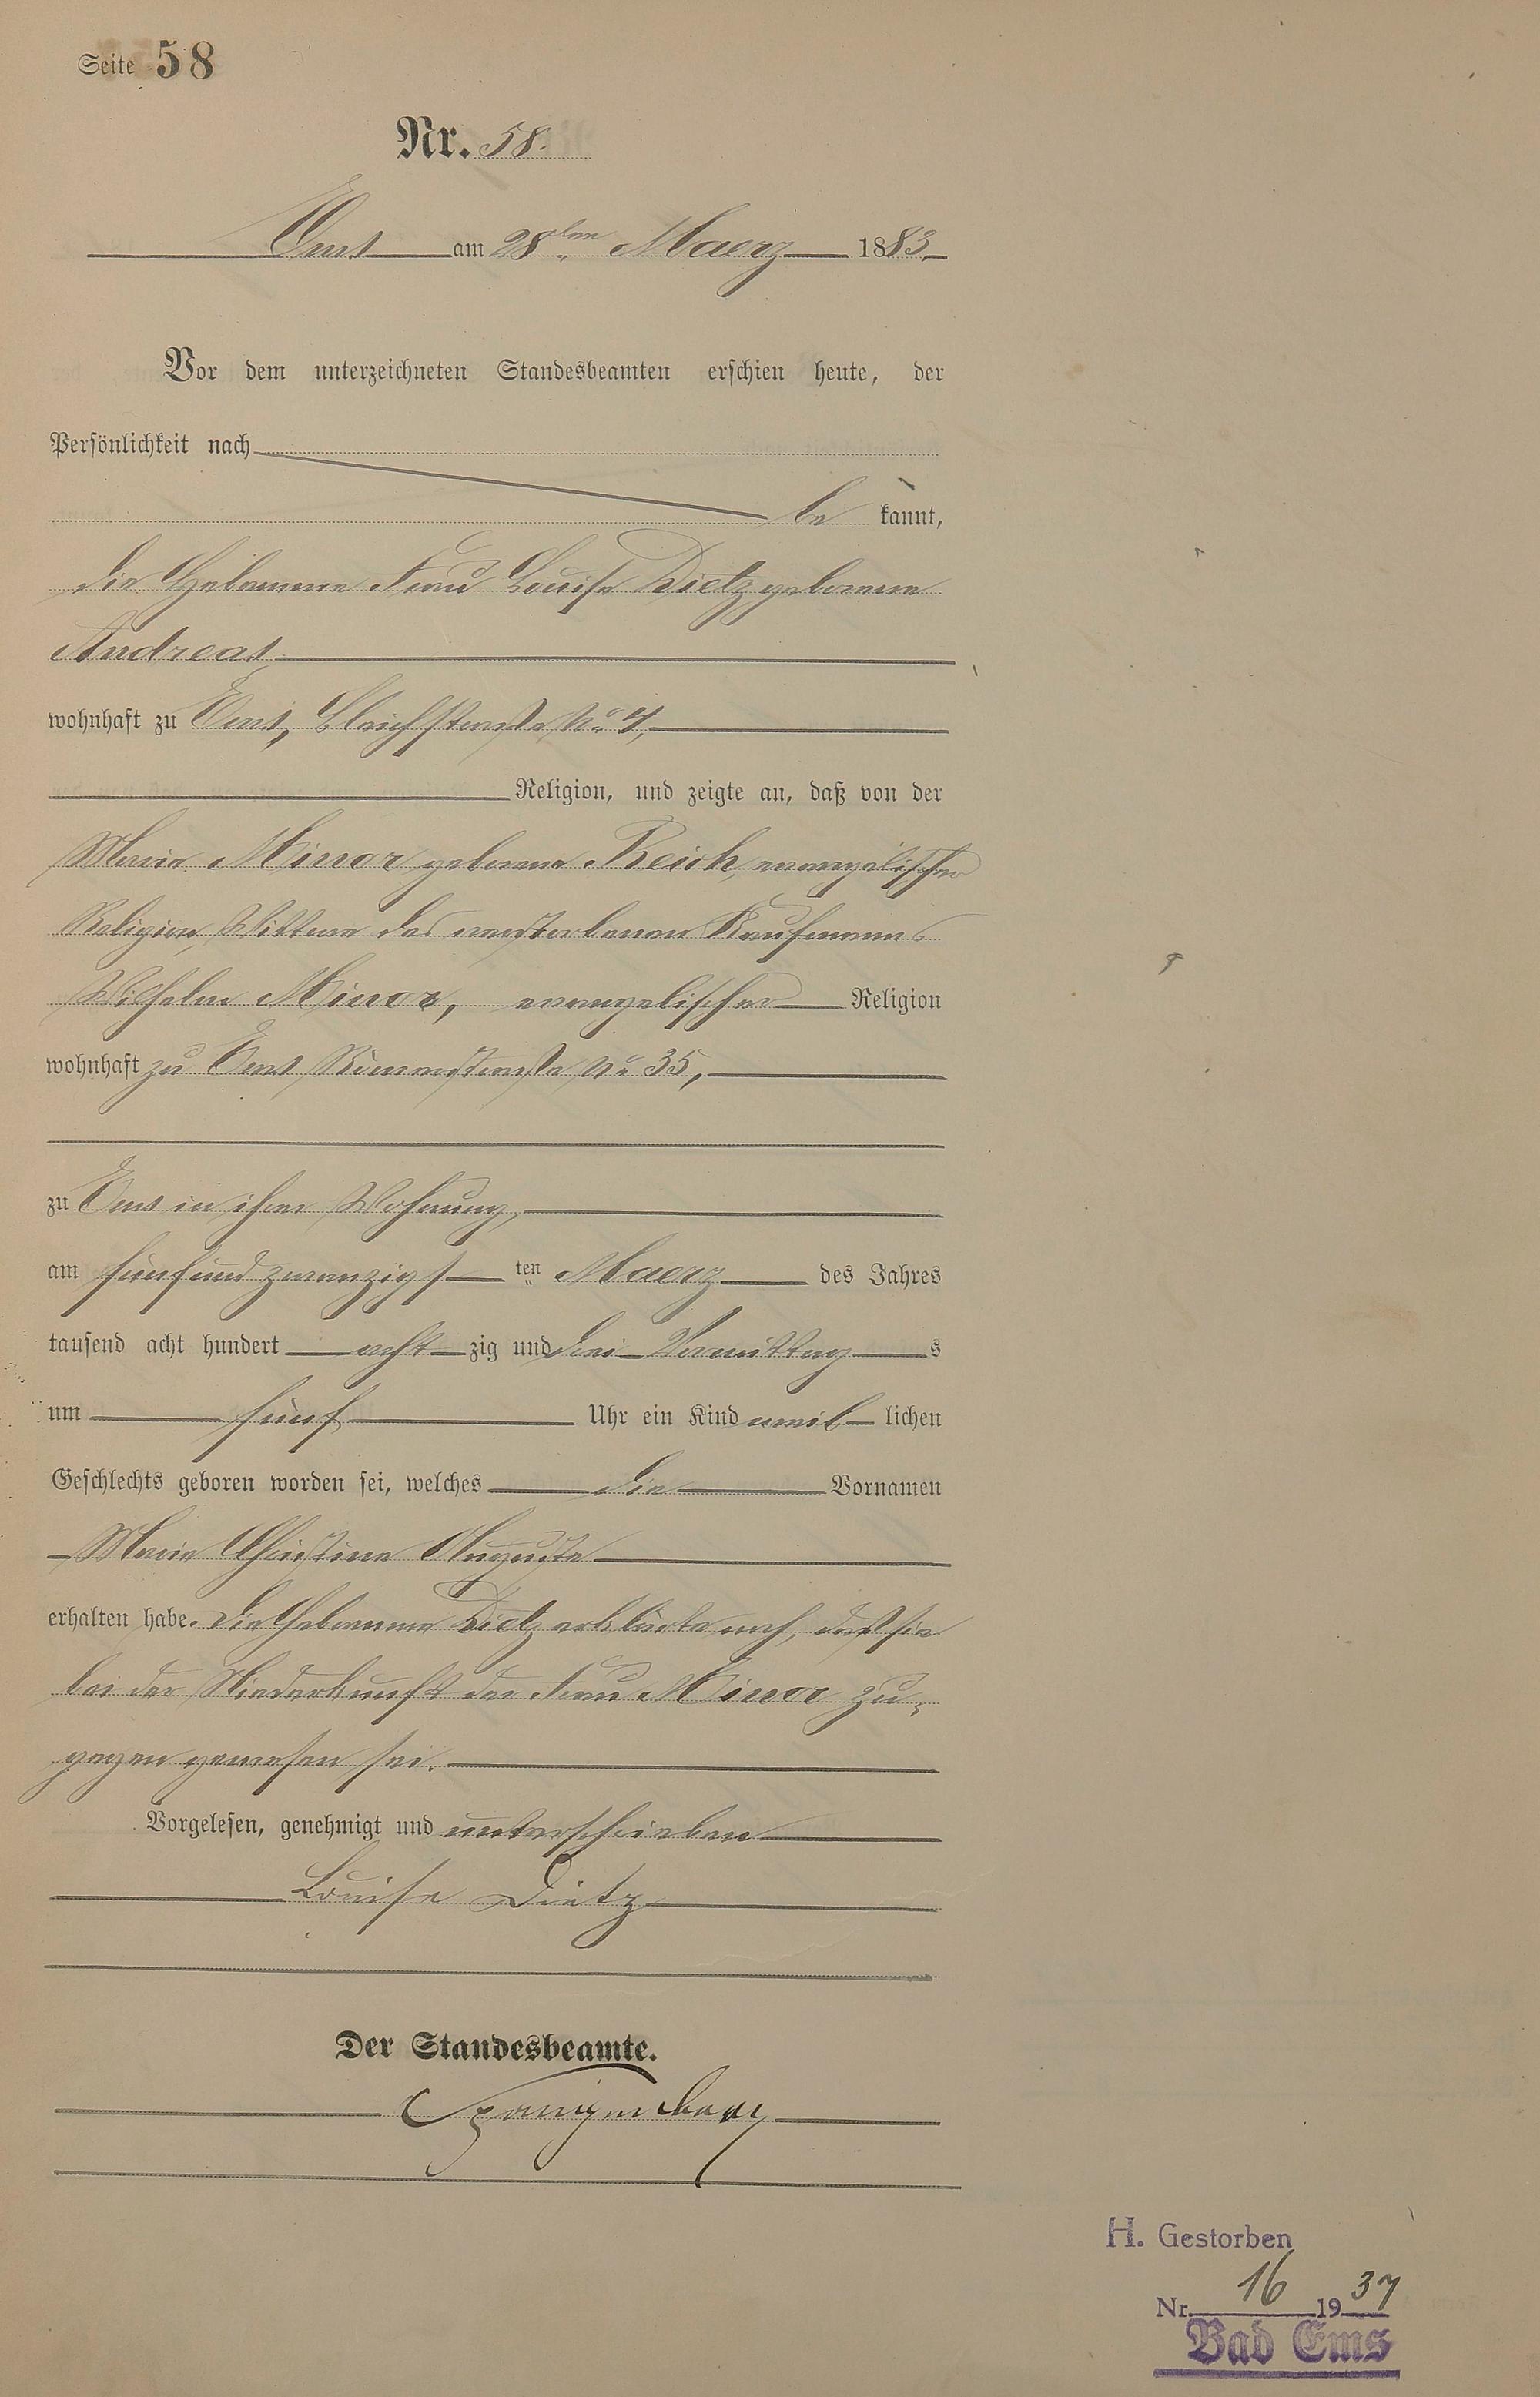 Seite 58
Nr. 58.
Ems am 28ten Maerz 1883.
Vor dem unterzeichneten Standesbeamten erschien heute, der
Persönlichkeit nach
be kannt,
die Hebamme Frau Louise Dietz geborene
Andreas
wohnhaft zu Ems, Bleichstraße No 4,
Religion, und zeigte an, daß von der
Maria Minor geborene Reich, evangelischer
Religion, Wittwe des verstorbenen Kaufmanns
Wilhelm Minor, evangelischer Religion
wohnhaft zu Ems Römerstraße No 35,
zu Ems in ihrer Wohnung,
am fünfundzwanzigs ten Maerz des Jahres
tausend acht hundert acht zig und drei Vormittag s
um fünf Uhr ein Kind weib lichen
Geschlechts geboren worden sei, welches die Vornamen
Maria Christina Auguste
erhalten habe. Die Hebamme Dietz erklärte noch, daß sie
bei der Niederkunft der Frau Minor zu-
gegen gewesen sei.
Vorgelesen, genehmigt und unterschrieben
Louise Dietz
Der Standesbeamte.
H. Gestorben
Nr. 16 1937
Bad Ems